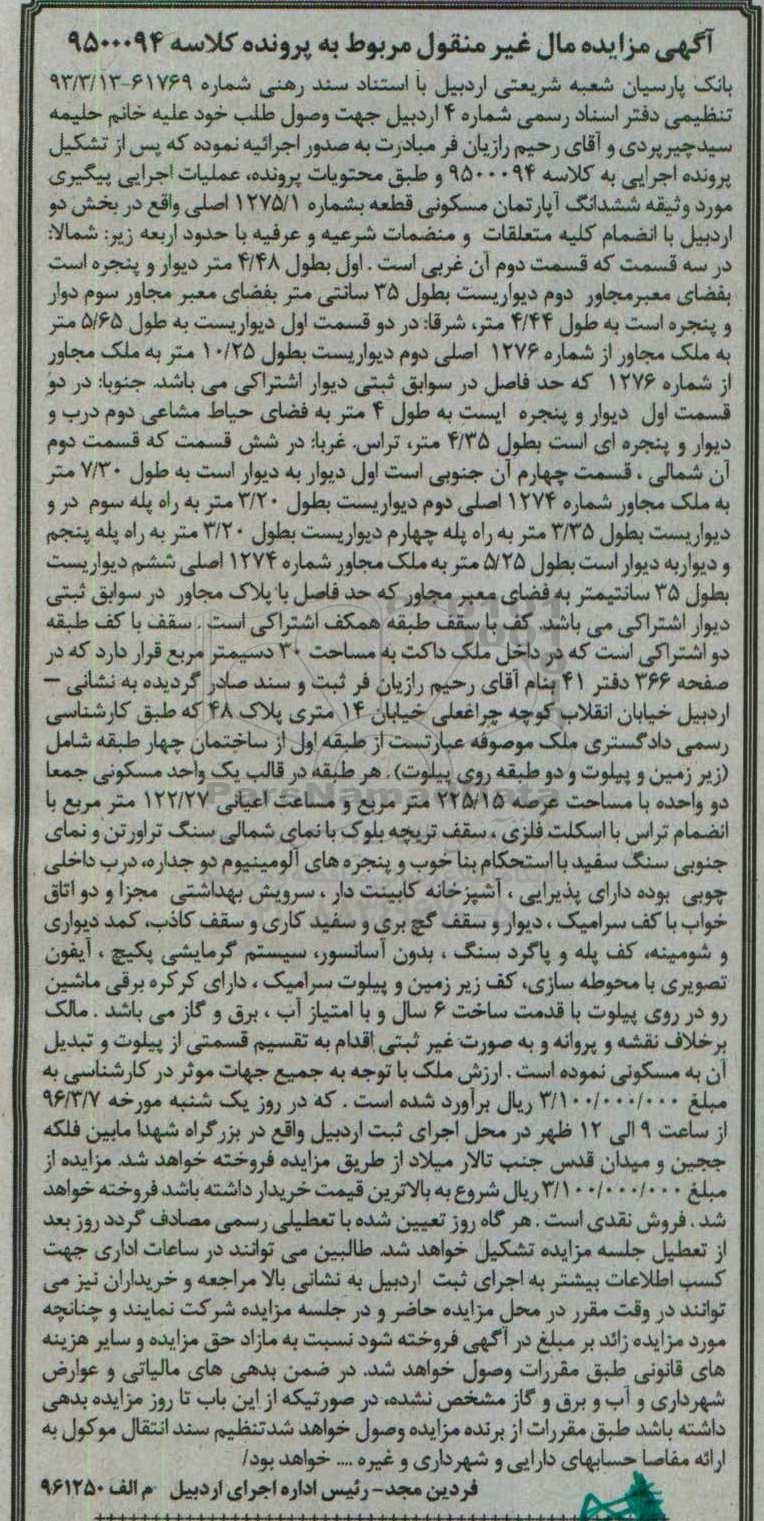 آگهی مزایده مال غیر منقول مربوط به پرونده کلاسه ۹۵۰۰۰۹۴
بانک پارسیان شعبه شریعتی اردبیل با استناد سند رهنی شماره ۶۱۷۶۹-۹۳/۳/۱۳
تنظیمی دفتر اسناد رسمی شماره ۴ اردبیل جهت وصول طلب خود علیه خانم حلیمه
سیدچیرپردی و آقای رحیم رازیان فر مبادرت به صدور اجرائیه نموده که پس از تشکیل
پرونده اجرایی به کلاسه ۹۵۰۰۰۹۴ و طبق محتویات پرونده، عملیات اجرایی پیگیری
مورد وثیقه ششدانگ آپارتمان مسکونی قطعه بشماره ۱۲۷۵/۱ اصلی واقع در بخش دو
اردبیل با انضمام کلیه متعلقات و منضمات شرعیه و عرفیه با حدود اربعه زیر: شمالا:
در سه قسمت که قسمت دوم آن غربی است . اول بطول ۴/۴۸ متر دیوار و پنجره است
بفضای معبرمجاور دوم دیواریست بطول ۳۵ سانتی متر بفضای معبر مجاور سوم دوار
و پنجره است به طول ۴/۴۴ متر، شرقا: در دو قسمت اول دیواریست به طول ۵/۶۵ متر
به ملک مجاور از شماره ۱۲۷۶ اصلی دوم دیواریست بطول ۱۰/۲۵ متر به ملک مجاور
از شماره ۱۲۷۶ که حد فاصل در سوابق ثبتی دیوار اشتراکی می باشد. جنوبا: در دو
قسمت اول دیوار و پنجره ایست به طول ۴ متر به فضای حیاط مشاعی دوم درب و
دیوار و پنجره ای است بطول ۴/۳۵ متر، تراس. غربا: در شش قسمت که قسمت دوم
آن شمالی ، قسمت چهارم آن جنوبی است اول دیوار به دیوار است به طول ۷/۳۰ متر
به ملک مجاور شماره ۱۲۷۴ اصلی دوم دیواریست بطول ۳/۲۰ متر به راه پله سوم در و
دیواریست بطول ۳/۳۵ متر به راه پله چهارم دیواریست بطول ۳/۲۰ متر به راه پله پنجم
و دیواربه دیوار است بطول ۵/۲۵ متر به ملک مجاور شماره ۱۲۷۴ اصلی ششم دیواریست
بطول ۳۵ سانتیمتر به فضای معبر مجاور که حد فاصل با پلاک مجاور در سوابق ثبتی
دیوار اشتراکی می باشد. کف با سقف طبقه همکف اشتراکی است . سقف با کف طبقه
دو اشتراکی است که در داخل ملک داکت به مساحت ۳۰ دسیمتر مربع قرار دارد که در
صفحه ۳۶۶ دفتر ۴۱ بنام آقای رحیم رازیان فر ثبت و سند صادر گردیده به نشانی –
اردبیل خیابان انقلاب کوچه چراغعلی خیابان ۱۴ متری پلاک ۴۸ که طبق کارشناسی
رسمی دادگستری ملک موصوفه عبارتست از طبقه اول از ساختمان چهار طبقه شامل
(زیر زمین و پیلوت و دو طبقه روی پیلوت) . هر طبقه در قالب یک واحد مسکونی جمعا
دو واحده با مساحت عرصه ۲۲۵/۱۵ متر مربع و مساعت اعیانی ۱۲۲/۲۷ متر مربع با
انضمام تراس با اسکلت فلزی ، سقف تریچه بلوک با نمای شمالی سنگ تراورتن و نمای
جنوبی سنگ سفید با استحکام بنا خوب و پنجره های آلومینیوم دو جداره، درب داخلی
چوبی بوده دارای پذیرایی ، آشپزخانه کابینت دار ، سرویش بهداشتی مجزا و دو اتاق
خواب با کف سرامیک ، دیوار و سقف گچ بری و سفید کاری و سقف کاذب، کمد دیواری
و شومینه، کف پله و پاگرد سنگ ، بدون آسانسور، سیستم گرمایشی پکیچ ، آیفون
تصویری با محوطه سازی، کف زیر زمین و پیلوت سرامیک ، دارای کرکره برقی ماشین
رو در روی پیلوت با قدمت ساخت ۶ سال و با امتیاز آب ، برق و گاز می باشد . مالک
برخلاف نقشه و پروانه و به صورت غیر ثبتی اقدام به تقسیم قسمتی از پیلوت و تبدیل
آن به مسکونی نموده است . ارزش ملک با توجه به جمیع جهات موثر در کارشناسی به
مبلغ ۳/۱۰۰/۰۰۰/۰۰۰ ریال برآورد شده است . که در روز یک شنبه مورخه ۹۶/۳/۷
از ساعت ۹ الی ۱۲ ظهر در محل اجرای ثبت اردبیل واقع در بزرگراه شهدا مابین فلکه
ججین و میدان قدس جنب تالار میلاد از طریق مزایده فروخته خواهد شد. مزایده از
مبلغ ۳/۱۰۰/۰۰۰/۰۰۰ ریال شروع به بالاترین قیمت خریدار داشته باشد فروخته خواهد
شد . فروش نقدی است . هر گاه روز تعیین شده با تعطیلی رسمی مصادف گردد روز بعد
از تعطیل جلسه مزایده تشکیل خواهد شد. طالبین می توانند در ساعات اداری جهت
کسب اطلاعات بیشتر به اجرای ثبت اردبیل به نشانی بالا مراجعه و خریداران نیز می
توانند در وقت مقرر در محل مزایده حاضر و در جلسه مزایده شرکت نمایند و چنانچه
مورد مزایده زائد بر مبلغ در آگهی فروخته شود نسبت به مازاد حق مزایده و سایر هزینه
های قانونی طبق مقررات وصول خواهد شد. در ضمن بدهی های مالیاتی و عوارض
شهرداری و آب و برق و گاز مشخص نشده، در صورتیکه از این باب تا روز مزایده بدهی
داشته باشد طبق مقررات از برنده مزایده وصول خواهد شدتنظیم سند انتقال موکول به
ارائه مفاصا حسابهای دارایی و شهرداری و غیره .... خواهد بود/
فردین مجد- رئیس اداره اجرای اردبیل م الف ۹۶۱۲۵۰
ParsNamadData